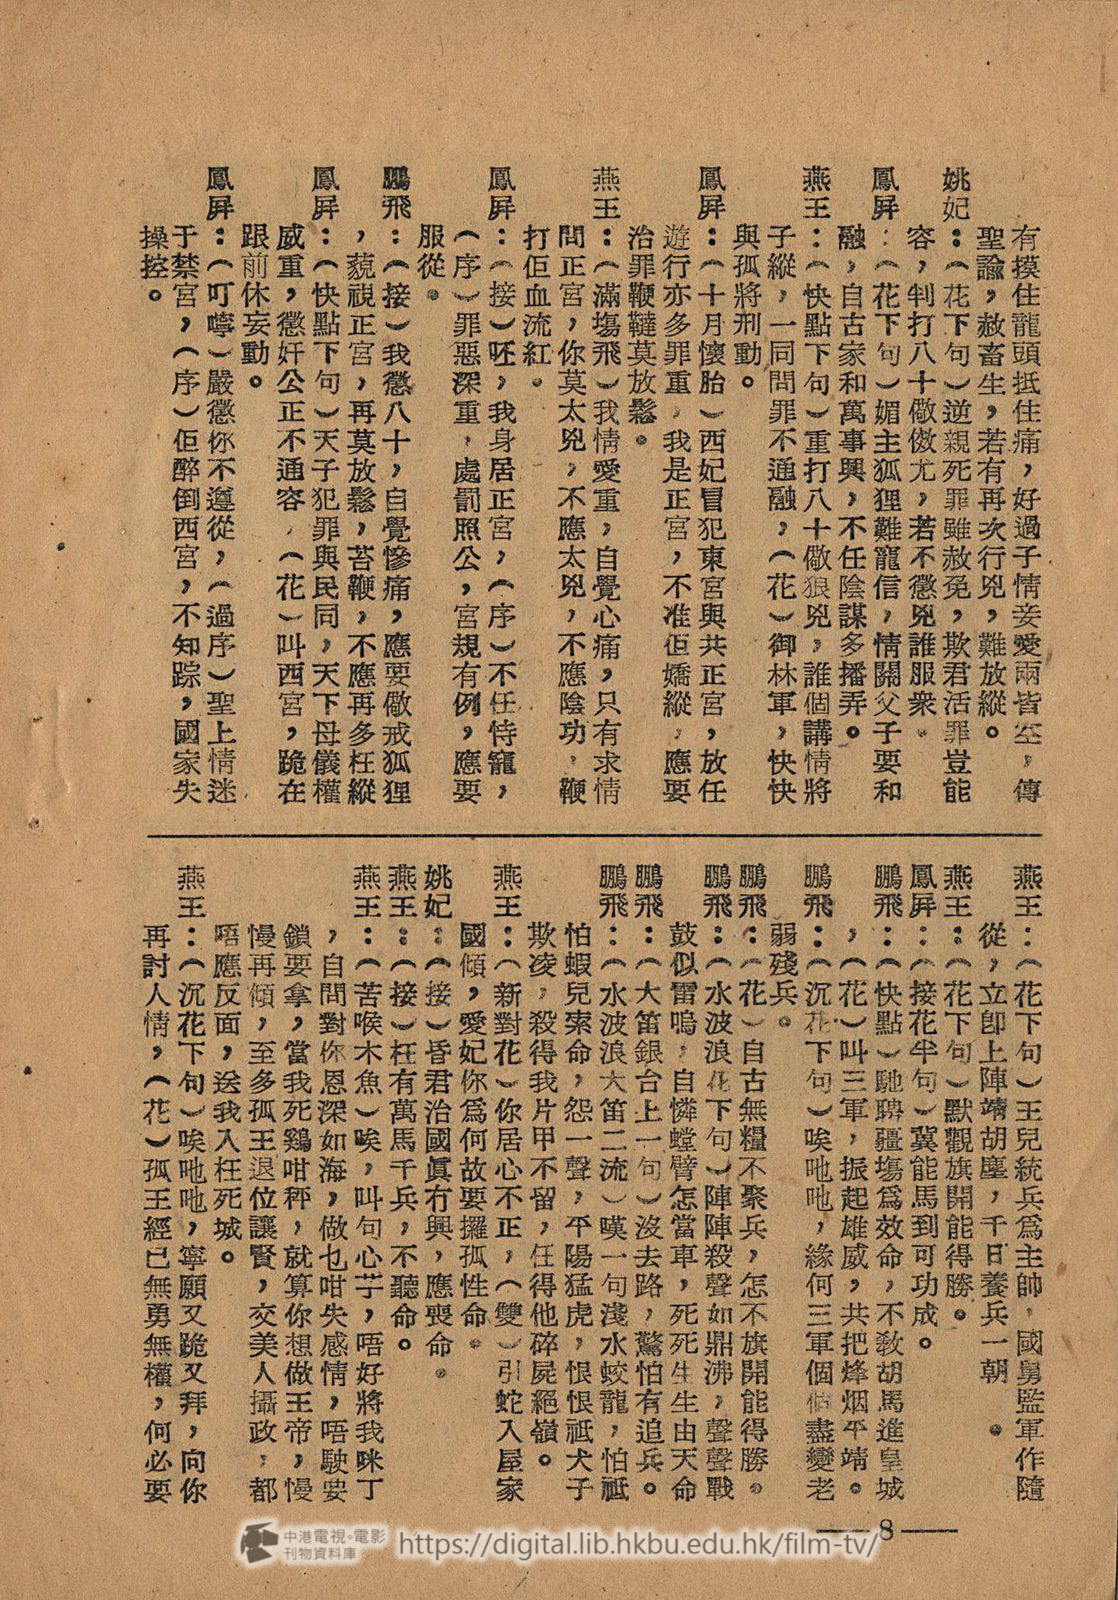 有摸住龍頭抵住痛，好過子情妾愛兩皆空，傳
聖諭，赦畜生，若有再次行兇，難放縱。
姚妃：（花下句）逆親死罪雖赦免，欺君活罪豈能
容，判打八十儆傚尤，若不懲兇誰服衆。
鳳屏：（花下句）媚主狐狸難寵信，情關父子要和
融，自古家和萬事興，不任陰謀多播弄。
燕王：（快點下句）重打八十儆狠兇，誰個講情將
子縱，一同問罪不通融，（花）御林軍，快快
與孤將刑動。
鳳屏：（十月懷胎）西妃冒犯東宮與共正宮，放任
遊行亦多罪重，我是正宮，不准佢嬌縱，應要
治罪鞭韃莫放鬆。
燕王：（滿塲飛）我情愛重，自覺心痛，只有求情
問正宮，你莫太兇，不應太兇，不應陰功，鞭
打佢血流紅。
鳳屏：（接）呸，我身居正宮，（序）不任恃寵，
（序）罪惡深重，處罰照公，宮規有例，應要
服從。
鵬飛：（接）我懲八十，自覺慘痛，應要儆戒狐狸
，藐視正宮，再莫放鬆，苔鞭，不應再多枉縱
鳳屏：（快點下句）天子犯罪與民同，天下母儀權
威重，懲奸公正不通容，（花）叫西宮，跪在
跟前休妄動。
鳳屏：（叮嚀）嚴懲你不遵從，（過序）聖上情迷
于禁宮，（序）佢醉倒西宮，不知踪，國家失
操控。
燕王：（花下句）王兒統兵爲主帥，國舅監軍作隨
從，立卽上陣靖胡塵，千日養兵一朝。
燕王：（花下句）默觀旗開能得勝。
鳳屏：（接花半句）冀能馬到可功成。
鵬飛：（快點）馳騁疆塲爲效命，不敎胡馬進皇城
，（花）叫三軍，振起雄威，共把烽烟平靖。
鵬飛：（沉花下句）唉吔吔，緣何三軍個個盡變老
弱殘兵。
鵬飛：（花）自古無糧不聚兵，怎不旗開能得勝。
鵬飛：（水波浪花下句）陣陣殺聲如鼎沸，聲聲戰
鼓似雷鳴，自憐螳臂怎當車，死死生生由天命
鵬飛：（大笛銀台上一句）沒去路，驚怕有追兵。
鵬飛：（水波浪大笛二流）嘆一句淺水蛟龍，怕祗
怕蝦兒索命，怨一聲，平陽猛虎，恨恨祗犬子
欺凌，殺得我片甲不留，任得他碎屍絕嶺。
燕王：（新對花）你居心不正，（雙）引蛇入屋家
國傾，愛妃你爲何故要攞孤性命。
姚妃：（接）昏君治國眞冇興，應喪命。
燕王：（接）枉有萬馬千兵，不聽命。
燕王：（苦喉木魚）唉，叫句心芓，唔好將我咪丁
，自問對你恩深如海，做乜咁失感情，唔駛要
鎖要拿，當我死鷄咁秤，就算你想做王帝，慢
慢再傾，至多孤王退位讓賢，交美人攝政，都
唔應反面，送我入枉死城。
燕王：（沉花下句）唉吔吔，寧願又跪又拜，向你
再討人情，（花）孤王經已無勇無權，何必要
8
中港電視・電影
刊物資料庫
https://digital.lib.hkbu.edu.hk/film-tv/